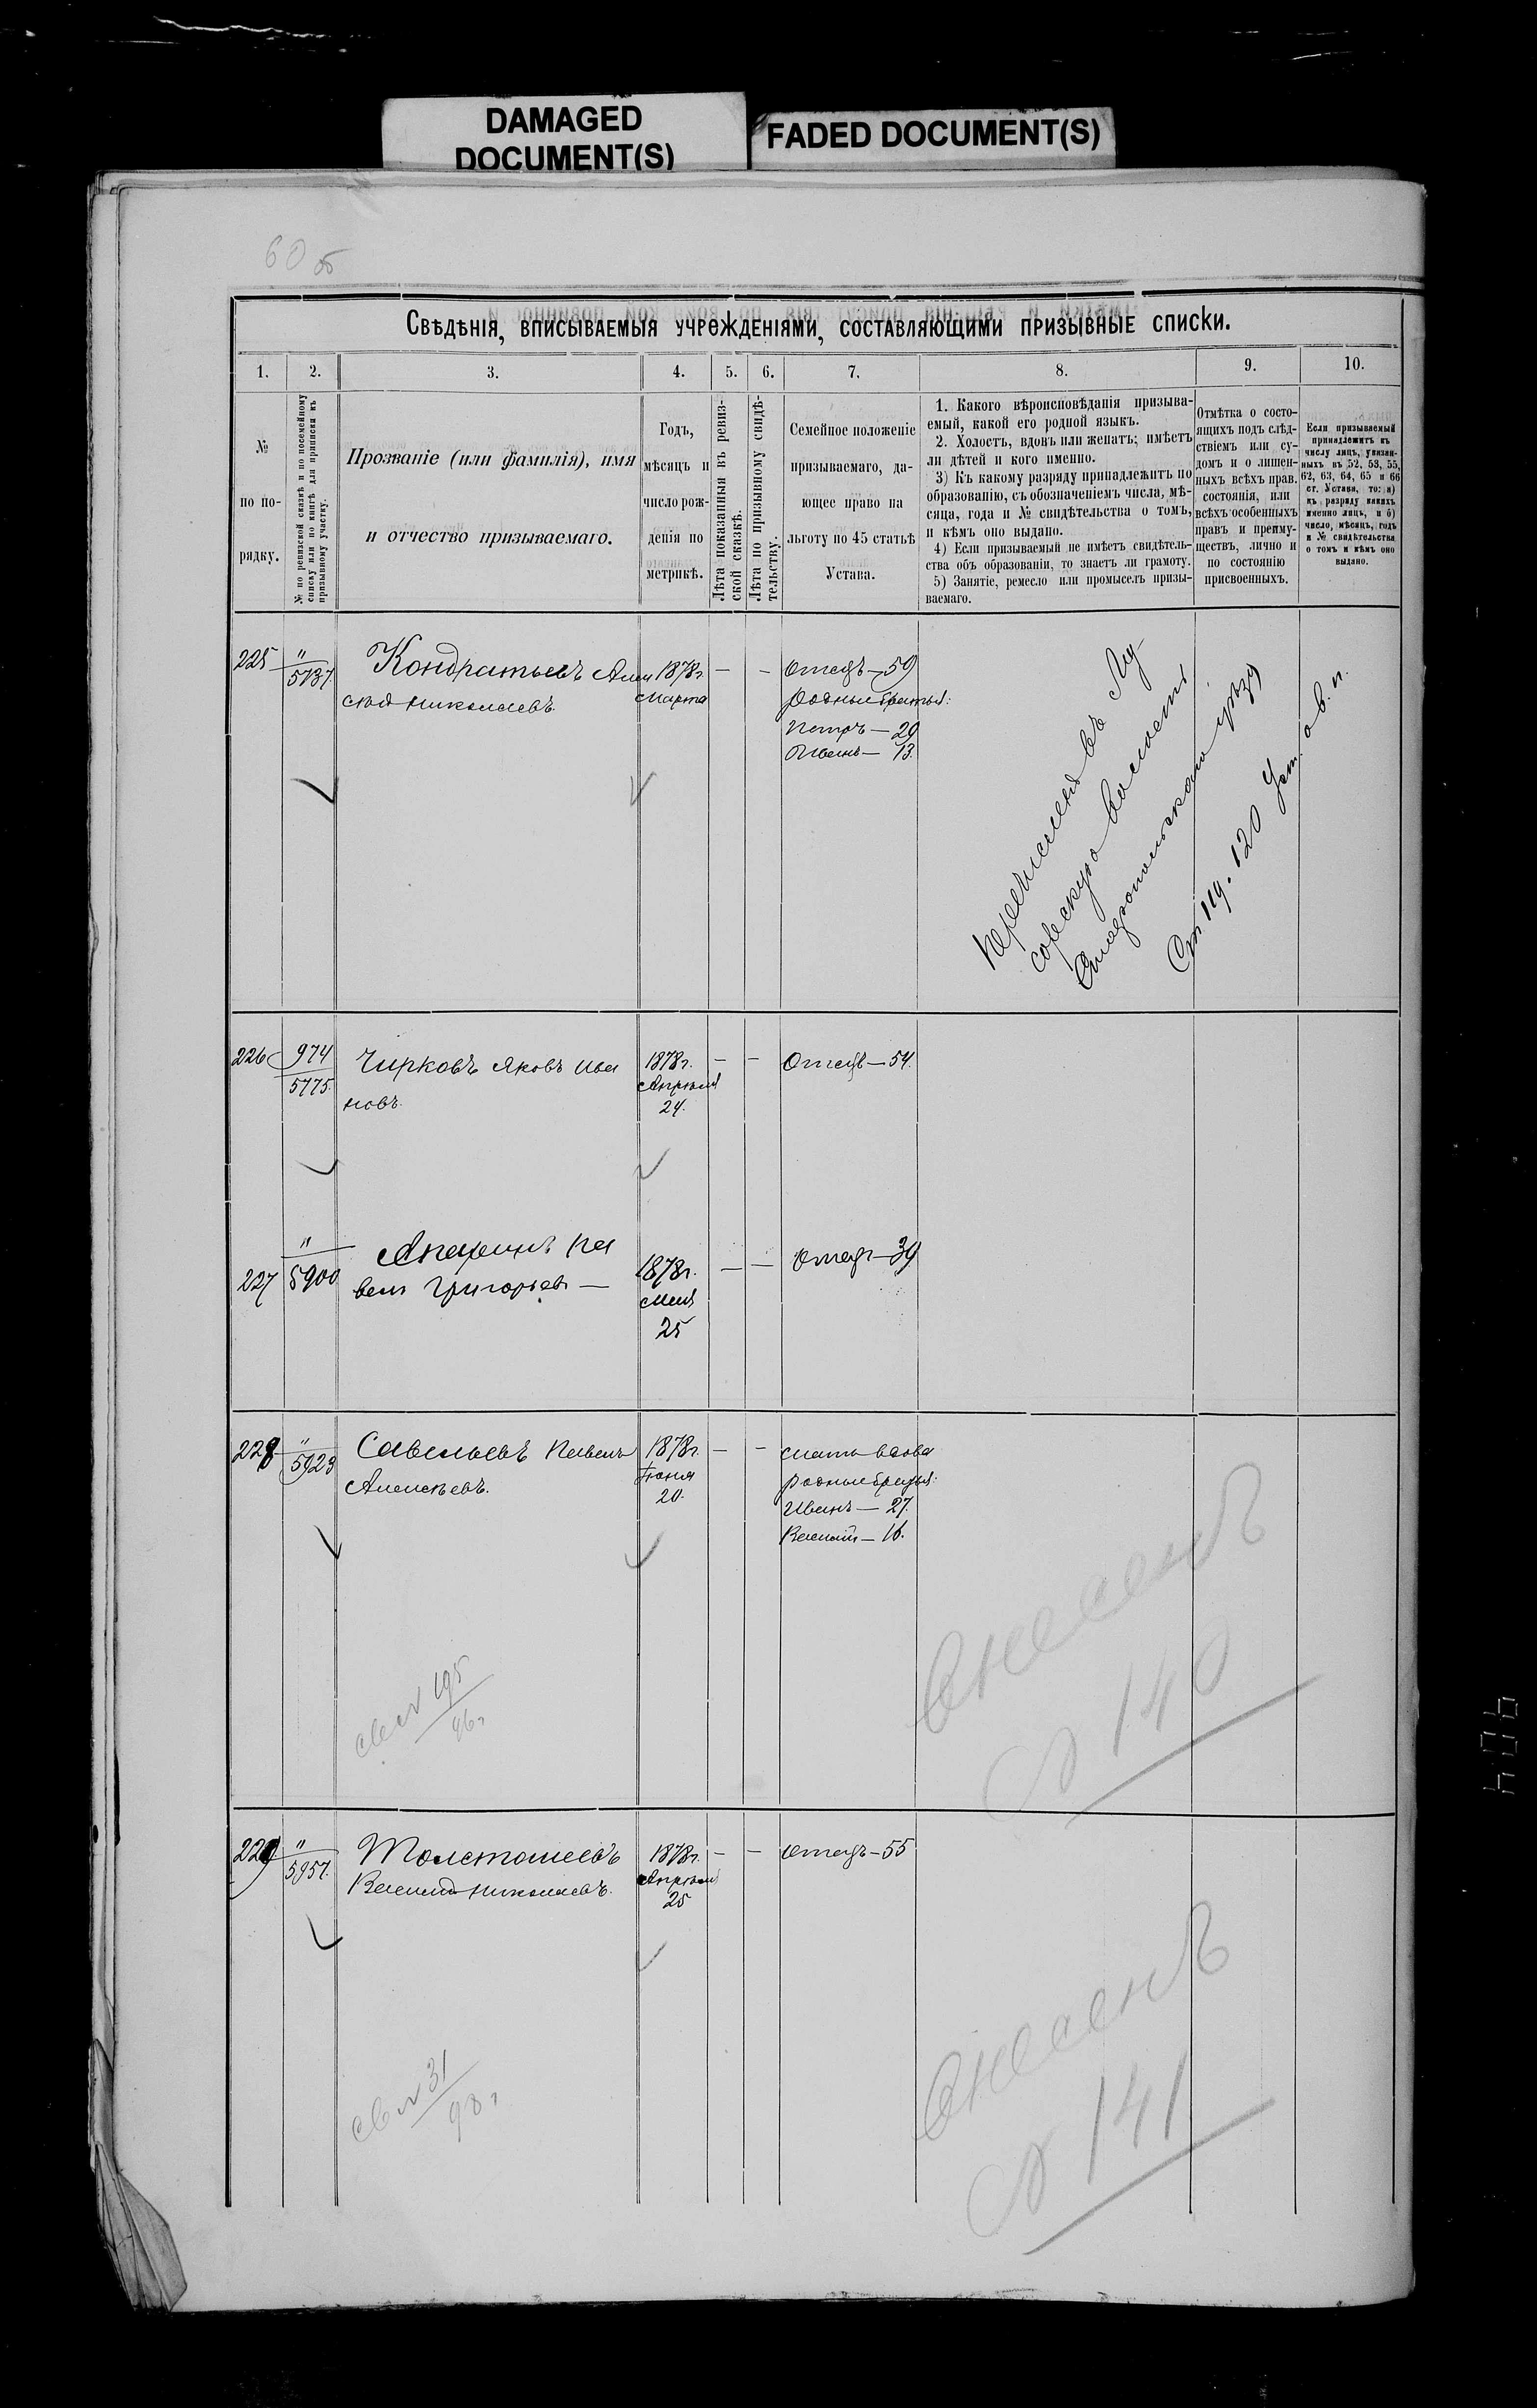 DAMAGED
DOCUMENT(S)
FADED DOCUMENT(S)
60 об
Свѣдѣнія, вписываемыя учрежденіями, составляющими призывные списки.
1. 2. 3. 4. 5. 6. 7. 8. 9. 10.
№
по по-
рядку.
№ по ревизской сказкѣ и по посемейному
списку или по книгѣ для приписки къ
призывному участку.
Прозваніе (или фамилія), имя
и отчество призываемаго.
Годъ,
мѣсяцъ и
число рож-
денія по
метрикѣ.
Лѣта показанныя въ ревиз-
ской сказкѣ.
Лѣта по призывному свидѣ-
тельству.
Семейное положеніе
призываемаго, да-
ющее право на
льготу по 45 статьѣ
Устава.
1. Какого вѣроисповѣданія призыва-
емый, какой его родной языкъ.
2. Холостъ, вдовъ или женатъ; имѣетъ
ли дѣтей и кого именно.
3) Къ какому разряду принадлежитъ по
образованію, съ обозначеніемъ числа, мѣ-
сяца, года и № свидѣтельства о томъ,
и кѣмъ оно выдано.
4) Если призываемый не имѣетъ свидѣтель-
ства объ образованіи, то знаетъ ли грамоту.
5) Занятіе, ремесло или промыселъ призы-
ваемаго.
Отмѣтка о состо-
ящихъ подъ слѣд-
ствіемъ или су-
домъ и о лишен-
ныхъ всѣхъ прав.
состоянія, или
всѣхъ особенныхъ
правъ и преиму-
ществъ, лично и
по состоянію
присвоенныхъ.
Если призываемый
принадлежитъ къ
числу лицъ, указан-
ныхъ въ 52, 53, 55,
62, 63, 64, 65 и 66
ст. Устава, то: а)
къ разряду какихъ
именно лицъ, и б)
число, мѣсяцъ, годъ
и № свидѣтельства
о томъ и кѣмъ оно
выдано.
225 "
5737.
Кондратьевъ Алек
сѣй Николаевъ.
1878г.
Марта
— —
Отецъ — 59
Родные братья:
Петръ — 29
Иванъ — 13.
перечисленъ въ
волость
Ставропольскаго уѣзда
Ст. 119. 120 Уст. о в. п.
226 974
5775.
Чирковъ Яковъ Ива
новъ.
1878г.
Апрѣля
24.
— —
Отецъ — 54.
227 "
5900
Павелъ Григорьевъ —
1878г.
Мая
25
— —
Отецъ — 39
228 "
5923
Савельевъ Павелъ
Алексѣевъ.
1878г.
Іюня
20.
— —
Мать вдова
родные братья:
Иванъ — 27.
Василій — 16.
св № 195
96г
Внесенъ
№ 140
229 "
5957.
Толстошеевъ
Василій Николаевъ.
1878г.
Апрѣля
25
— —
Отецъ — 55
св № 31
98г
Внесенъ
№ 141
404